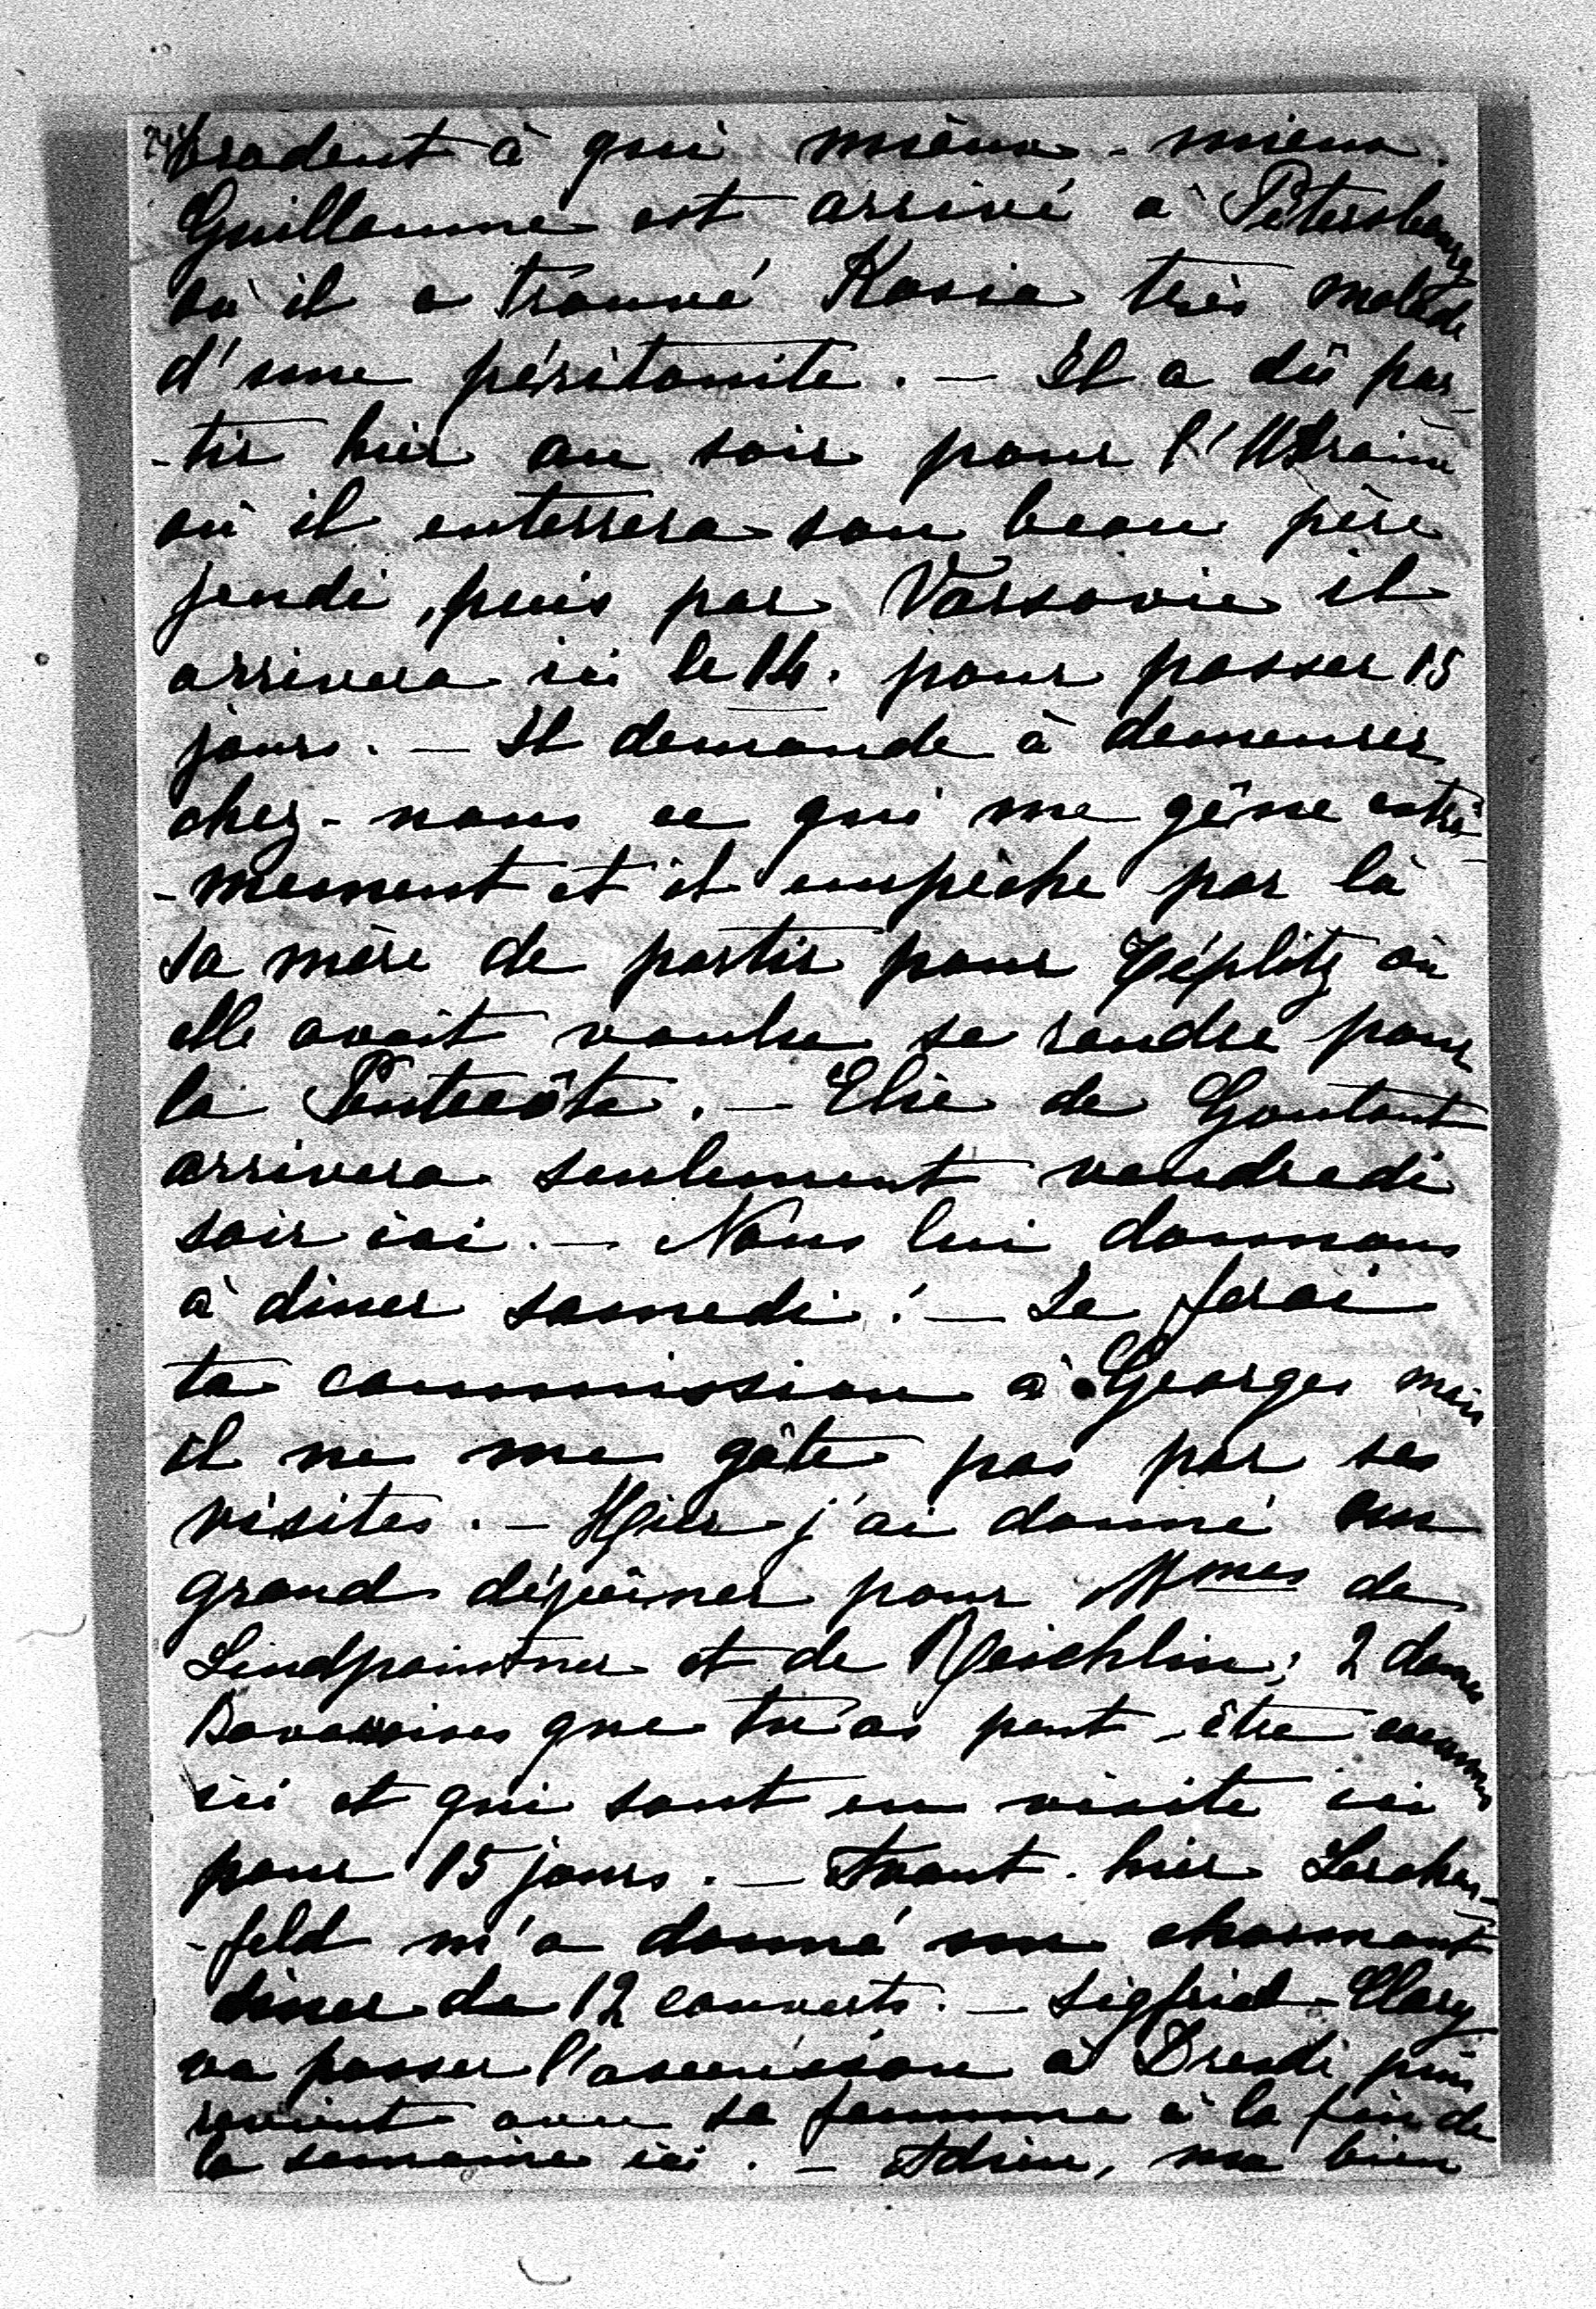 brodent à qui mieux-mieux.
Guillaume est arrivé à Pétersbourg
où il a trouvé Kasia très malade
d'une péritonite. — Il a dû par-
-tir hier au soir pour l'Ukraine
où il enterrera son beau père
jeudi, puis par Varsovie il
arrivera ici le 14. pour passer 15
jours. — Il demande à demeurer
chez-nous ce qui me gêne extrê-
-mement et il empêche par là
sa mère de partir pour Téplitz où
elle avait voulu se rendre pour
la Pentecôte. — Elise de Gontaut
arrivera seulement vendredi
soir ici. — Nous lui donnons
à diner samedi! — Je ferai
ta commission à Georges mais
il ne me gâte pas par ses
visites. — Hier j'ai donné un
grand déjeûner pour Mmes de
Lindpaintner et de Reichlin; 2 dames
Bavaroises que tu as peut-être connues
ici et qui sont en visite ici
pour 15 jours. — Avant-hier Lerchen-
-feld m'a donné un charmant
diner de 12 couverts. — Sigfried Clary
va passer l'ascension à Dresde puis
revient avec sa femme à la fin de
la semaine ici. — Adieu, ma bien